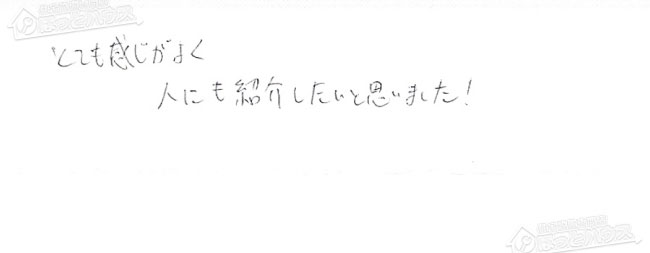 とても感じがよく
人にも紹介したいと思いました!